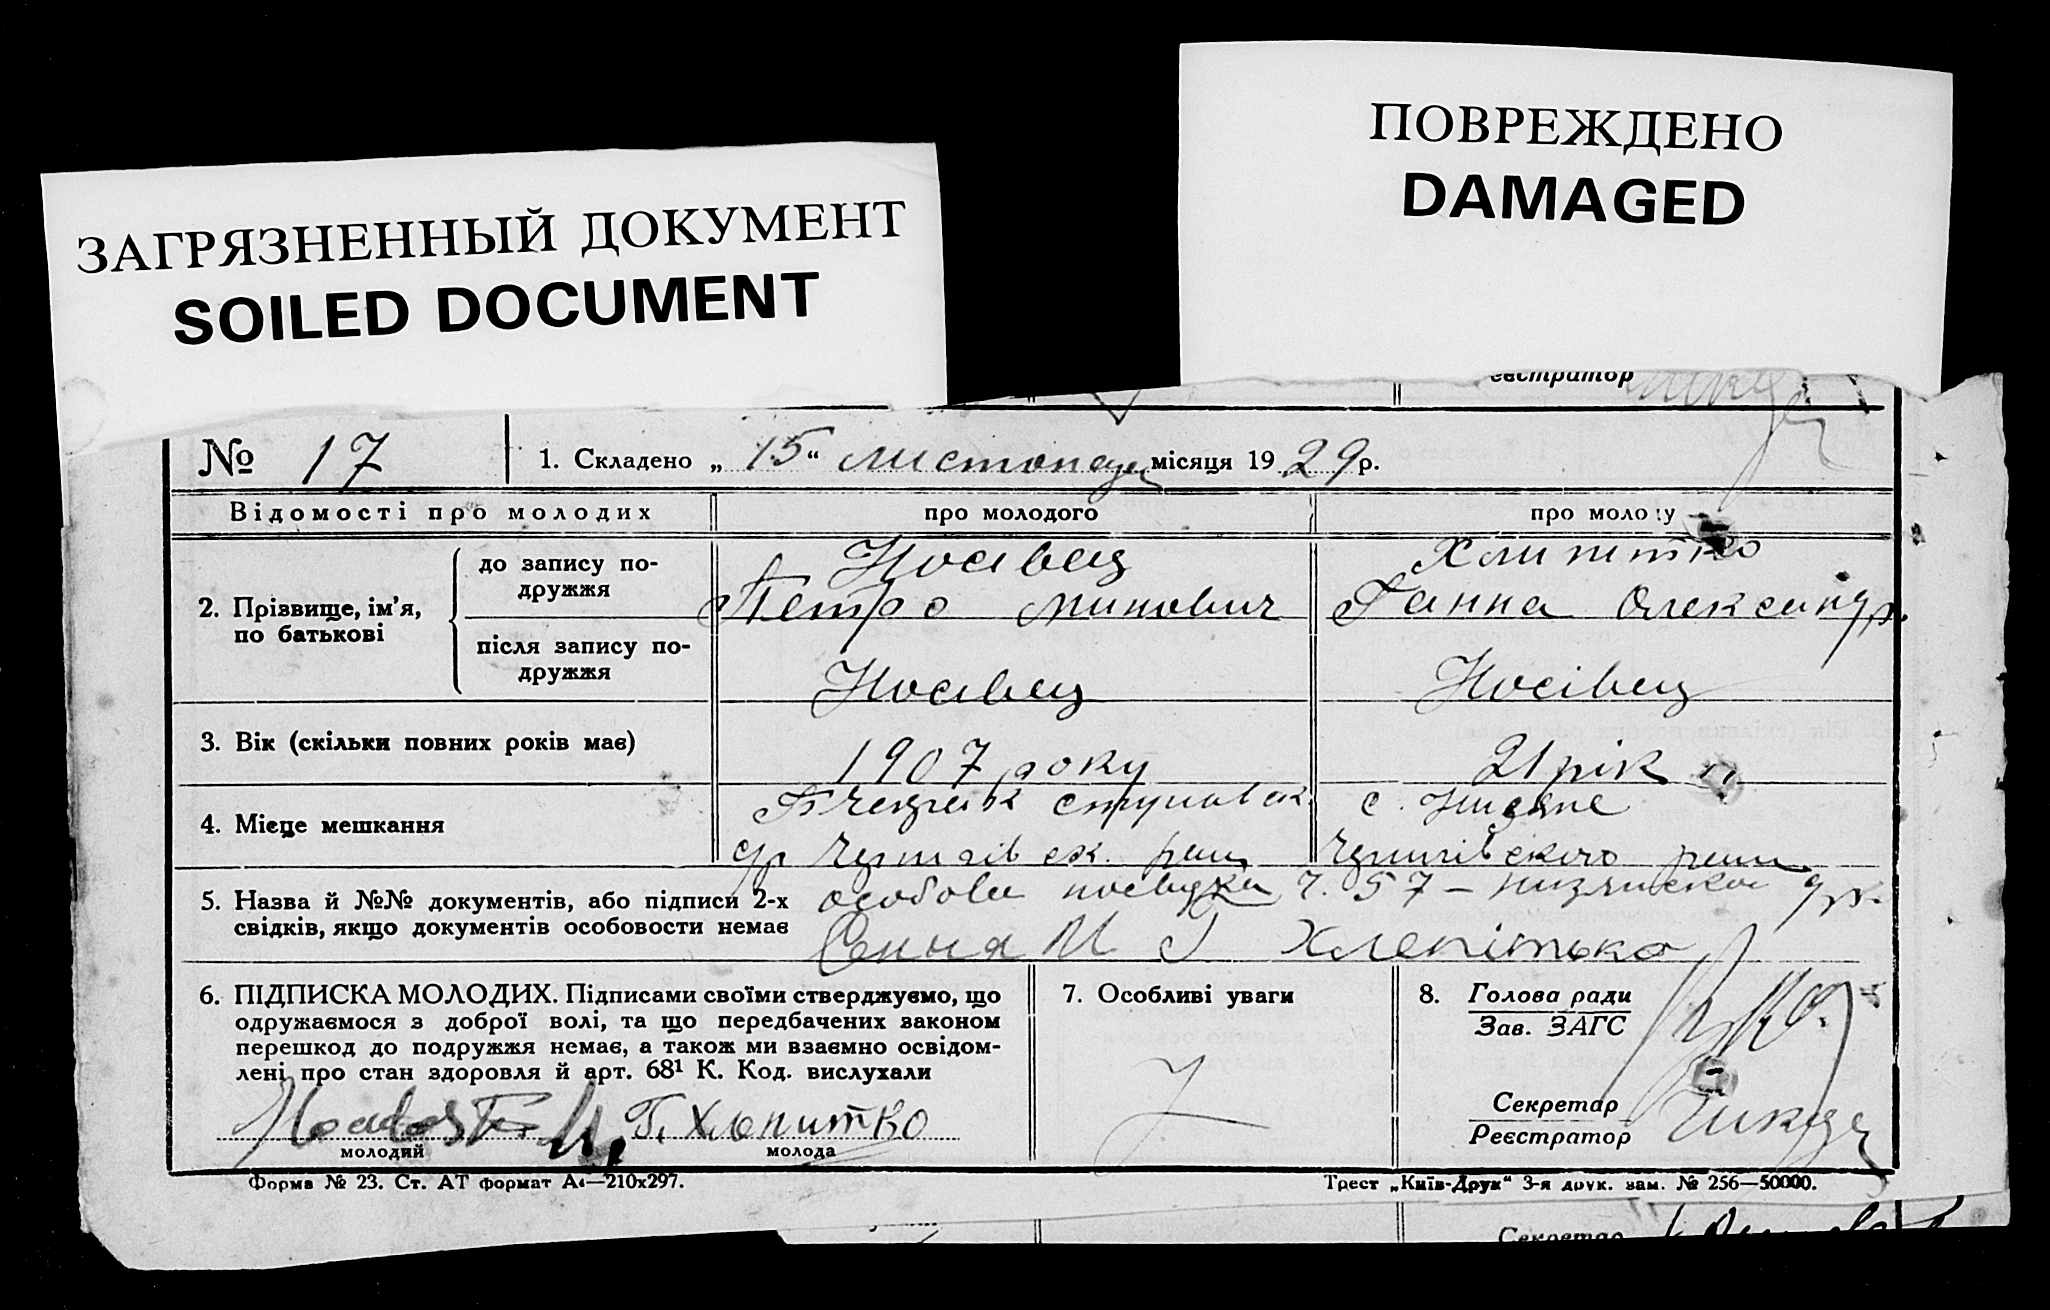 ЗАГРЯЗНЕННЫЙ ДОКУМЕНТ
SOILED DOCUMENT
ПОВРЕЖДЕНО
DAMAGED
еєстратор
№ 17
1. Складено „15“ листопада місяця 1929 р.
Відомості про молодих
про молодого
про моло у
2. Прізвище, ім’я, по батькові
до запису по-
дружжя
Носівец
Петро Минович
Хлипитко
Ганна Олександр.
після запису по-
дружжя
Носівец
Носівец
3. Вік (скільки повних років має)
1907 року
21 рік
4. Місце мешкання
с.
др Чернігівск. рай
Чернігівского рай
5. Назва й №№ документів, або підписи 2-х
свідків, якщо документів особовости немає
особова посвідка ч. 57 –
Хлепітько
6. ПІДПИСКА МОЛОДИХ. Підписами своїми стверджуємо, що
одружаємося з доброї волі, та що передбачених законом
перешкод до подружжя немає, а також ми взаємно освідом-
лені про стан здоровля й арт. 68¹ К. Код. вислухали
Г. Хлопитко
молодий
молода
7. Особливі уваги
8. Голова ради
Зав. ЗАГС
Секретар
Реєстратор
Форма № 23. Ст. АТ формат А4—210х297.
Трест „Київ-Друк“ 3-я друк. зам. № 256—50000.
Секретар